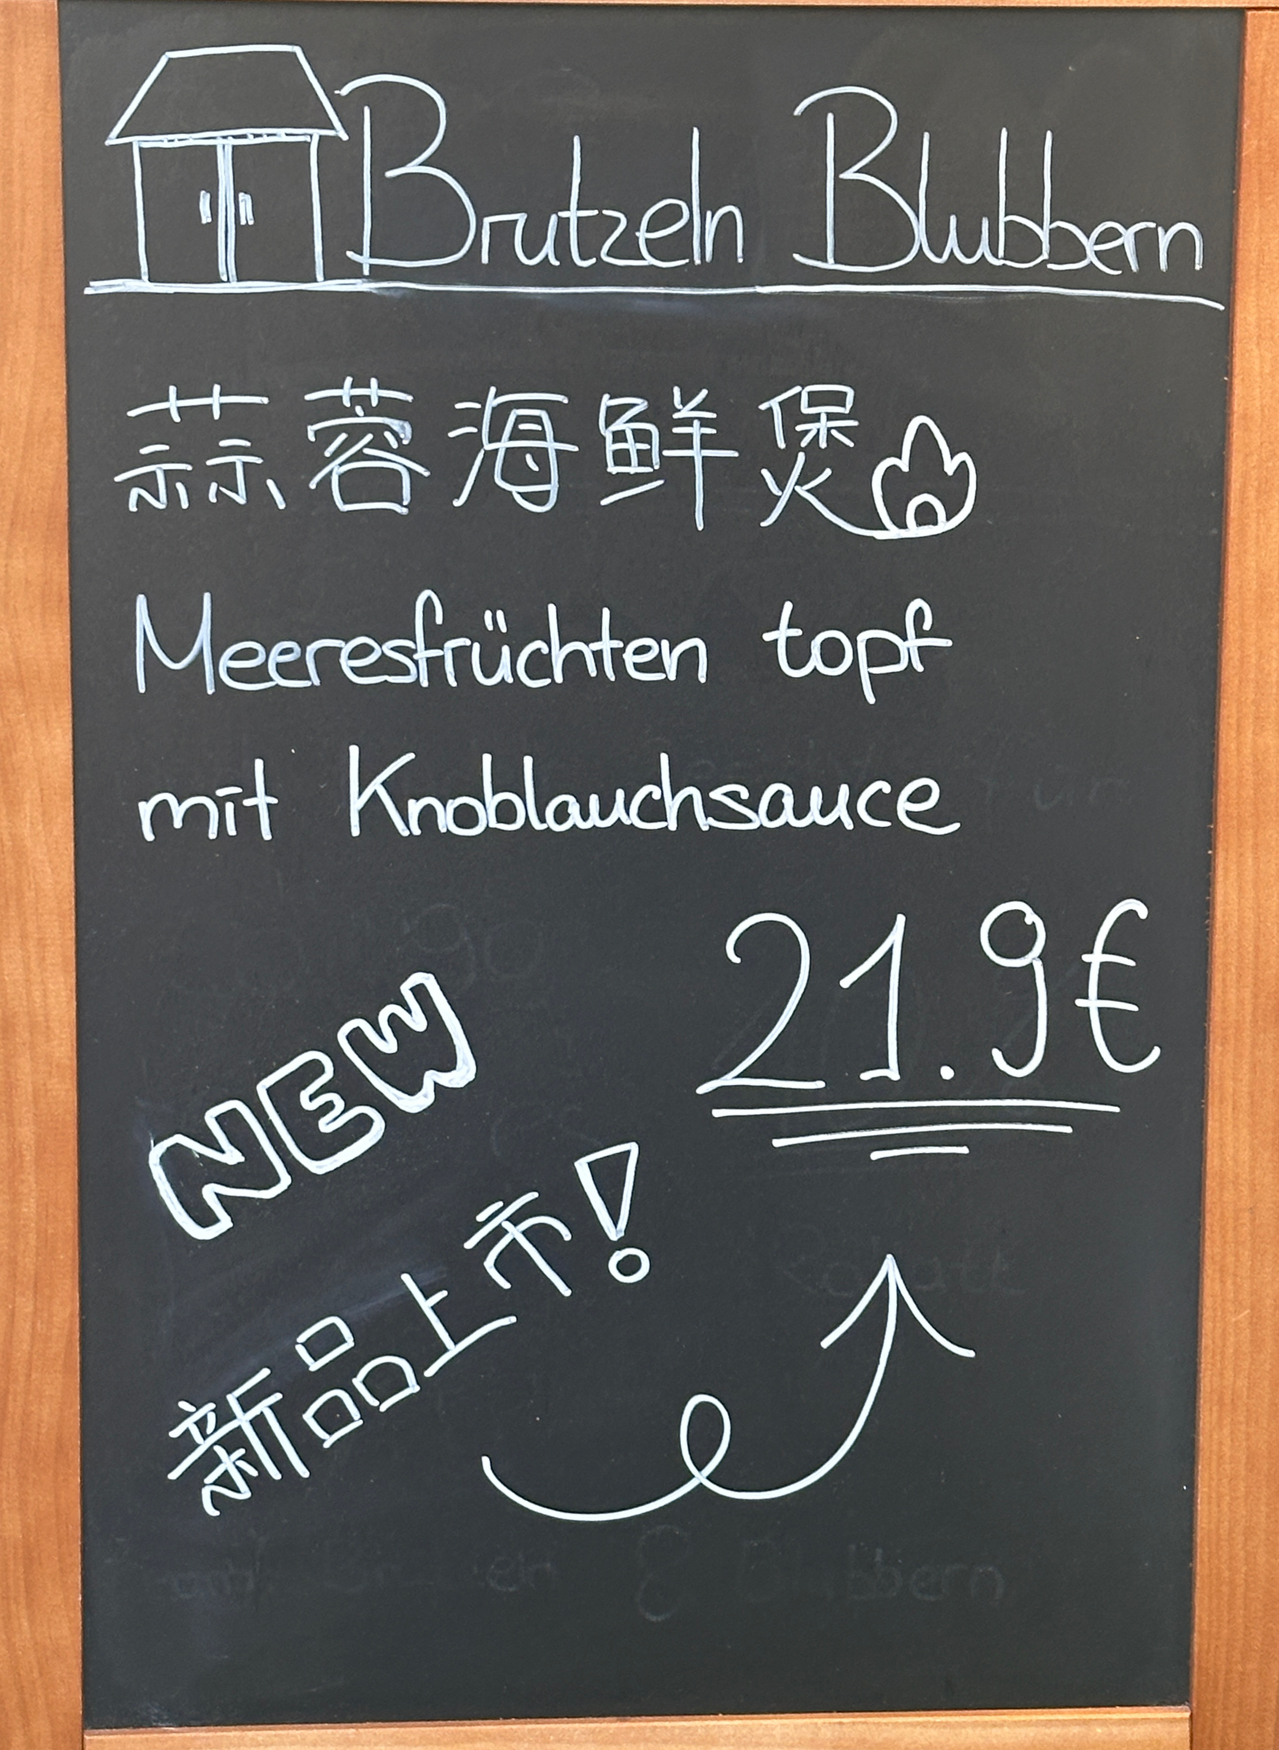 Brutzeln Blubbern
蒜蓉海鲜煲
Meeresfrüchten topf
mit Knoblauchsauce
21.9€
NEW
新品上市!